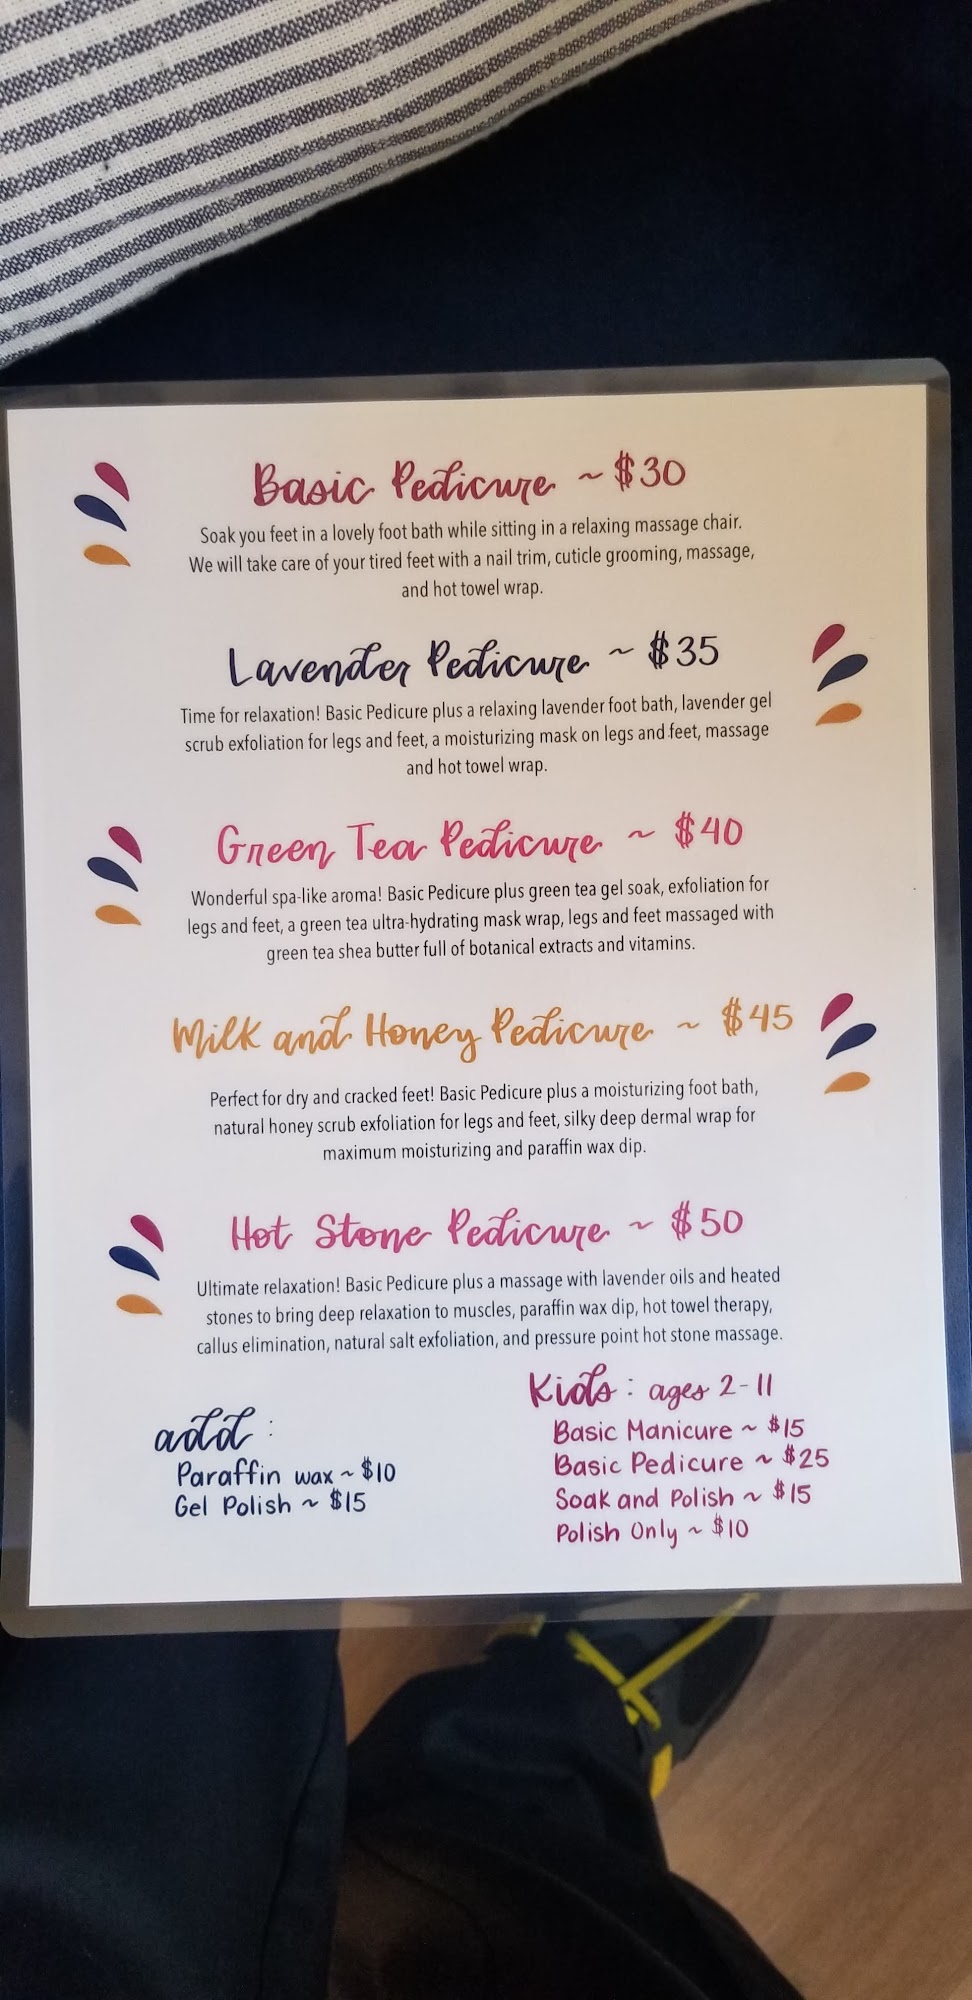 Basic Pedicure ~ $30
Soak you feet in a lovely foot bath while sitting in a relaxing massage chair.
We will take care of your tired feet with a nail trim, cuticle grooming, massage,
and hot towel wrap.
Lavender Pedicure ~ $35
Time for relaxation! Basic Pedicure plus a relaxing lavender foot bath, lavender gel
scrub exfoliation for legs and feet, a moisturizing mask on legs and feet, massage
and hot towel wrap.
Green Tea Pedicure ~ $40
Wonderful spa-like aroma! Basic Pedicure plus green tea gel soak, exfoliation for
legs and feet, a green tea ultra-hydrating mask wrap, legs and feet massaged with
green tea shea butter full of botanical extracts and vitamins.
Milk and Honey Pedicure ~ $45
Perfect for dry and cracked feet! Basic Pedicure plus a moisturizing foot bath,
natural honey scrub exfoliation for legs and feet, silky deep dermal wrap for
maximum moisturizing and paraffin wax dip.
Hot Stone Pedicure ~ $50
Ultimate relaxation! Basic Pedicure plus a massage with lavender oils and heated
stones to bring deep relaxation to muscles, paraffin wax dip, hot towel therapy,
callus elimination, natural salt exfoliation, and pressure point hot stone massage.
add :
Paraffin wax ~ $10
Gel Polish ~ $15
Kids : ages 2-11
Basic Manicure ~ $15
Basic Pedicure ~ $25
Soak and Polish ~ $15
Polish Only ~ $10